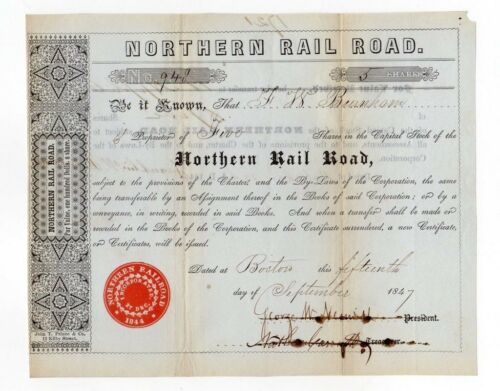 NORTHERN RAIL ROAD.
No. 948
5 SHARES
Be it Known, That F. W. Burnham
is Proprietor of Five Shares in the Capital Stock of the
Northern Rail Road,
subject to the provisions of the Charter and the By-Laws of the Corporation, the same
being transferable by an Assignment thereof in the Books of said Corporation; or by a
conveyance, in writing, recorded in said Books. And when a transfer shall be made or
recorded in the Books of the Corporation, and this Certificate surrendered, a new Certificate,
or Certificates, will be issued.
Dated at Boston this fifteenth
day of September 1847
George W.
President.
Treasurer.
NORTHERN RAIL ROAD.
Par Value, one Hundred Dolls. a share.
NORTHERN RAILROAD
INCORPORATED
27 DEC.
1844
12 Kilby Street,